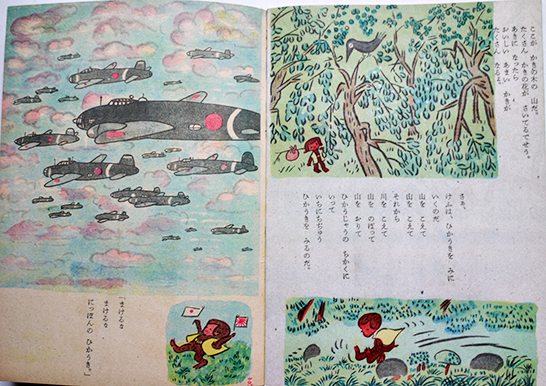 ここが かきの木の 山だ。
たくさん かきの花が さいてるでせう。
あきに なつたら
おいしい あまい かきが
たくさん なるぞ。
さあ、
けふは、ひかうきを みに
いくのだ
山を こえて
山を こえて
それから
川を こえて
山を のぼつて
山を おりて
ひかうじやうの ちかくに
いつて
いちにちぢゆう
ひかうきを みるのだ。
「まけるな
まけるな
につぽんの ひかうき。」